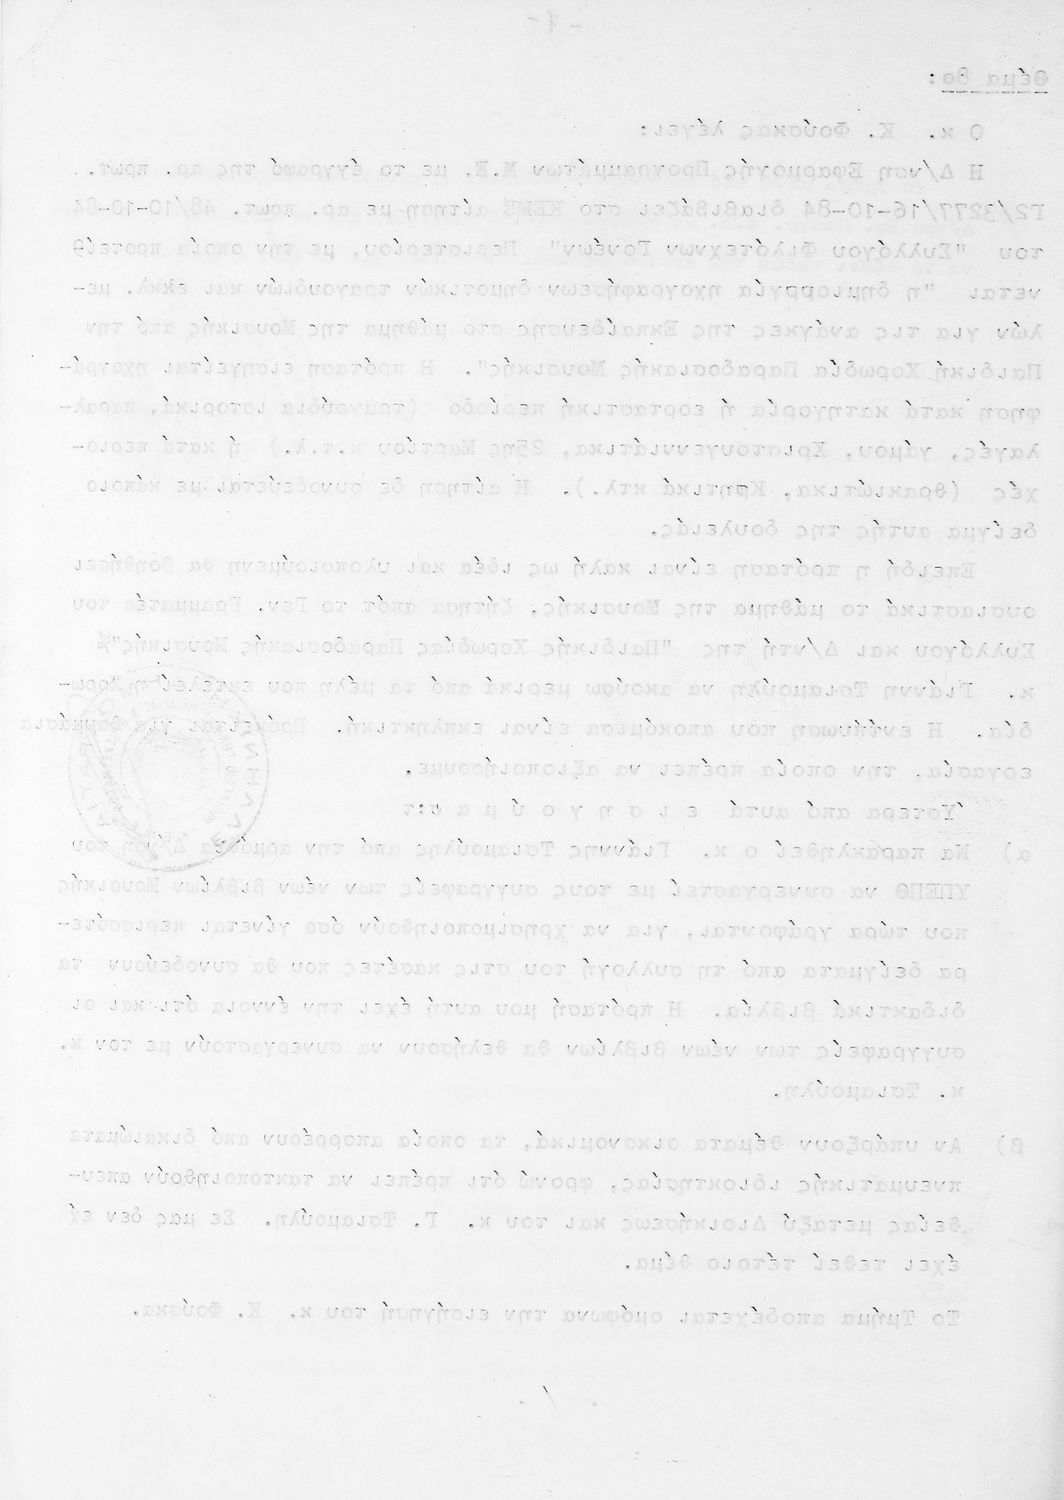 - 7 -
Θέμα 8ο:
Ο κ. Κ. Φούσκας λέγει:
Η Δ/νση Εφαρμογής Προγραμμάτων Μ.Ε. με το έγγραφό της αρ. πρωτ.
Γ2/3277/16-10-84 διαβιβάζει στο ΚΕΜΕ αίτηση με αρ. πρωτ. 48/10-10-84
του "Συλλόγου Φιλότεχνων Γονέων" Περιστερίου, με την οποία προτείθ
νεται "η δημιουργία ηχογραφήσεων δημοτικών τραγουδιών και εκκλ. με-
λών για τις ανάγκες της Εκπαίδευσης στο μάθημα της Μουσικής από την
Παιδική Χορωδία Παραδοσιακής Μουσικής". Η πρόταση εισηγείται ηχογρά-
φηση κατά κατηγορία ή εορταστική περίοδο (τραγούδια ιστορικά, παραλ-
λαγές, γάμου, Χριστουγεννιάτικα, 25ης Μαρτίου κ.τ.λ.) ή κατά περιο-
χές (θρακιώτικα, Κρητικά κτλ.). Η αίτηση δε συνοδεύεται με κάποιο
δείγμα αυτής της δουλειάς.
Επειδή η πρόταση είναι καλή ως ιδέα και υλοποιούμενη θα βοηθήσει
ουσιαστικά το μάθημα της Μουσικής, ζήτησα απότ το Γεν. Γραμματέα του
Συλλόγου και Δ/ντή της "Παιδικής Χορωδίας Παραδοσιακής Μουσικής"
κ. Γιάννη Τσιαμούλη να ακούσω μερικά από τα μέλη που εκτελεί η Χορω-
δία. Η εντύπωση που αποκόμισα είναι εκπληκτική. Πρόκειται για θαυμάσια
εργασία, την οποία πρέπει να αξιοποιήσουμε.
Ύστερα από αυτά ε ι σ η γ ο ύ μ α ι:
α) Να παρακληθεί ο κ. Γιάννης Τσιαμούλης από την αρμόδια Δ/νση του
ΥΠΕΠΘ να συνεργαστεί με τους συγγραφείς των νέων βιβλίων Μουσικής
που τώρα γράφονται, για να χρησιμοποιηθούν όσο γίνεται περισσότε-
ρα δείγματα από τη συλλογή του στις κασέτες που θα συνοδεύουν τα
διδακτικά βιβλία. Η πρότασή μου αυτή έχει την έννοια ότι και οι
συγγραφείς των νέων βιβλίων θα θελήσουν να συνεργαστούν με τον κ.
κ. Τσιαμούλη.
β) Αν υπάρξουν θέματα οικονομικά, τα οποία απορρέουν από δικαιώματα
πνευματικής ιδιοκτησίας, φρονώ ότι πρέπει να τακτοποιηθούν απευ-
θείας μεταξύ Διοικήσεως και του κ. Γ. Τσιαμούλη. Σε μας δεν εχ
έχει τεθεί τέτοιο θέμα.
Το Τμήμα αποδέχεται ομόφωνα την εισήγηση του κ. Κ. Φούσκα.
. / .